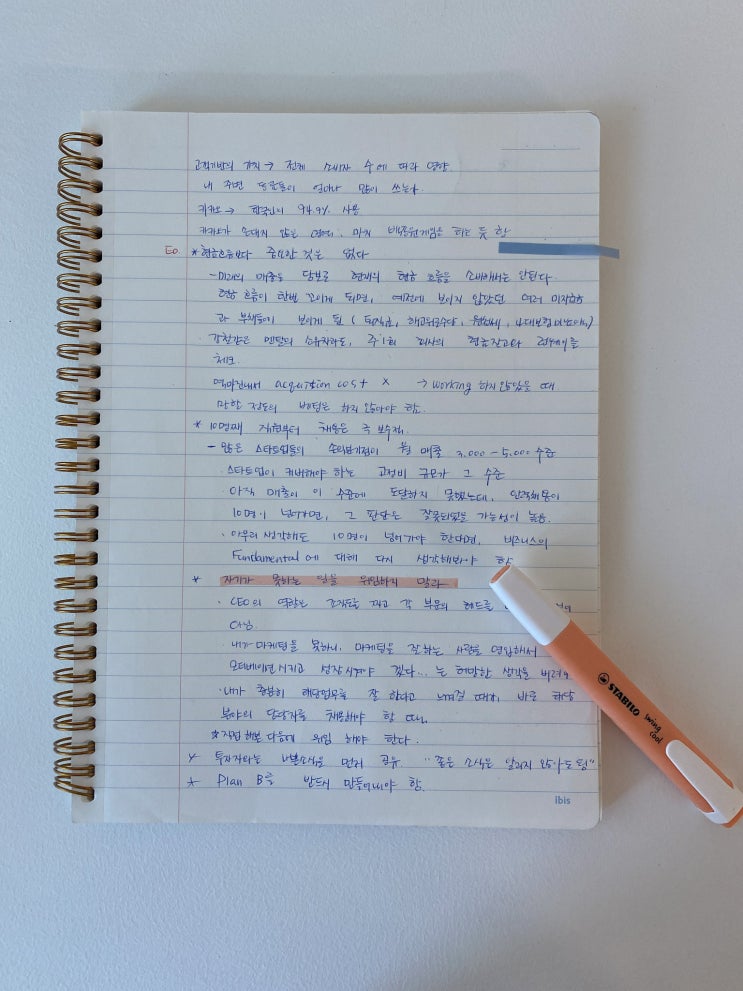 고객기반의 가치 → 전체 소비자 수에 따라 영향
내 주변 사람들이 얼마나 많이 쓰는가.
카카오 → 한국인의 94.9% 사용
카카오가 손대지 않은 영역. 마치 백종원게임을 하는 듯 함
EO. * 현금흐름보다 중요한 것은 없다
- 미래의 매출을 담보로 현재의 현금 흐름을 소비해서는 안된다.
현금 흐름이 한번 꼬이게 되면, 예전에 보이지 않았던 여러 미지급금
과 부채들이 보이게 됨 (퇴직금, 해고위로수당, 원천세, 4대보험 미납이자)
· 강철같은 멘탈의 소유자라도, 주 1회 회사의 현금잔고와 런웨이를
체크.
acquisition cost x → working 하지 않았을 때
망할 정도의 베팅은 하지 않아야 함.
* 10명째 직원부터 채용은 극 보수적.
- 많은 스타트업들의 손익분기점이 월 매출 3,000 - 5,000 수준
· 스타트업이 커버해야 하는 고정비 규모가 그 수준
· 아직 매출이 이 수준에 도달하지 못했는데, 인원채용이
10명이 넘어가면, 그 판단은 잘못되었을 가능성이 높음.
· 아무리 생각해도 10명이 넘어가야 한다면, 비즈니스의
Fundamental에 대해 다시 생각해봐야 함
* 자기가 못하는 일을 위임하지 말라
· CEO의 역량은 조직도를 짜고 각 부문의 헤드를
아님.
· 내가 마케팅을 못하니, 마케팅을 잘 하는 사람을 영입해서
모티베이션시키고 성장시켜야 겠다... 는 허망한 생각을 버려라
· 내가 충분히 해당업무를 잘 한다고 느껴질 때가, 바로 해당
분야의 담당자를 채용해야 할 때.
* 직접 해본 다음에 위임 해야 한다.
* 투자자와는 나쁜소식을 먼저 공유 "좋은 소식은 알리지 않아도 됨"
* Plan B를 반드시 만들어놔야 함.
ibis
STABILO
swing
cool